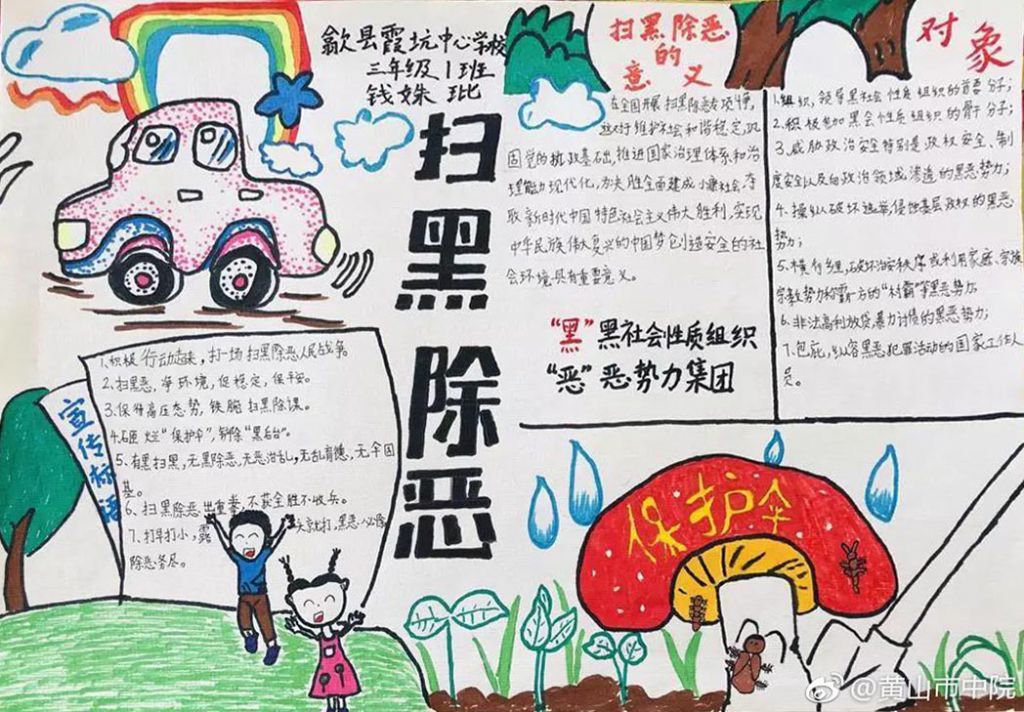 歙县霞坑中心学校
三年级1班
钱姝玭
扫黑除恶
扫黑除恶
的
意义
在全国开展扫黑除恶专项
这对于维护社会和谐稳定,巩
固党的执政基础,推进国家治理体系和治
理能力现代化,为决胜全面建成小康社会,夺
取新时代中国特色社会主义伟大胜利,实现
中华民族伟大复兴的中国梦创造安全的社
会环境具有重要意义。
“黑”黑社会性质组织
“恶”恶势力集团
对象
1.组织,领导黑社会性质组织的首要分子;
2.积极参加黑会性质组织的骨干分子;
3.威胁政治安全特别是政权安全、制
度安全以及向政治领域渗透的黑恶势力;
4.操纵破坏选举,侵蚀基层政权的黑恶
势力;
5.横行乡里,破坏治安秩序或利用家庭、宗族
宗教势力称霸一方的“村霸”等黑恶势力;
6.非法高利放贷、暴力讨债的黑恶势力;
7.包庇,纵容黑恶犯罪活动的国家工作人
员。
宣传标语
1.积极行动起来,打一场扫黑除恶人民战争。
2.扫黑恶,净环境,促稳定,保平安。
3.保持高压态势,铁腕扫黑除恶。
4.砸烂“保护伞”,铲除“黑后台”。
5.有黑扫黑,无黑除恶,无恶治乱,无乱 无 伞固
基。
6.扫黑除恶出重拳,不获全胜不收兵。
7.打早打小,露头就打,黑恶必除
除恶务尽。
保护伞
@黄山市中院